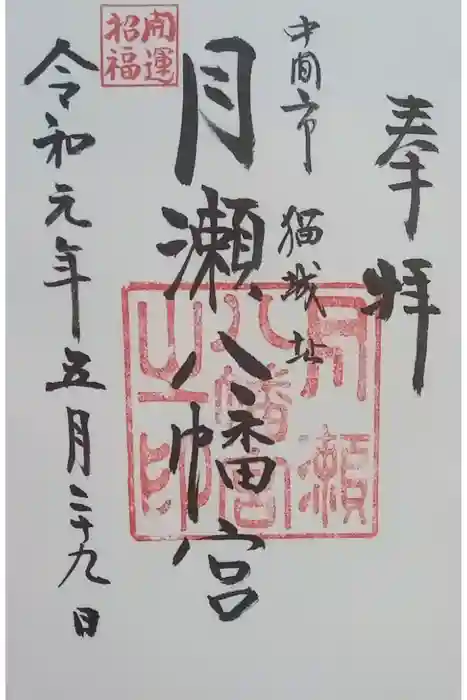 奉拝
中間市 猫城址
月瀬八幡宮
令和元年五月二十九日
開運招福
月瀬八幡宮之印